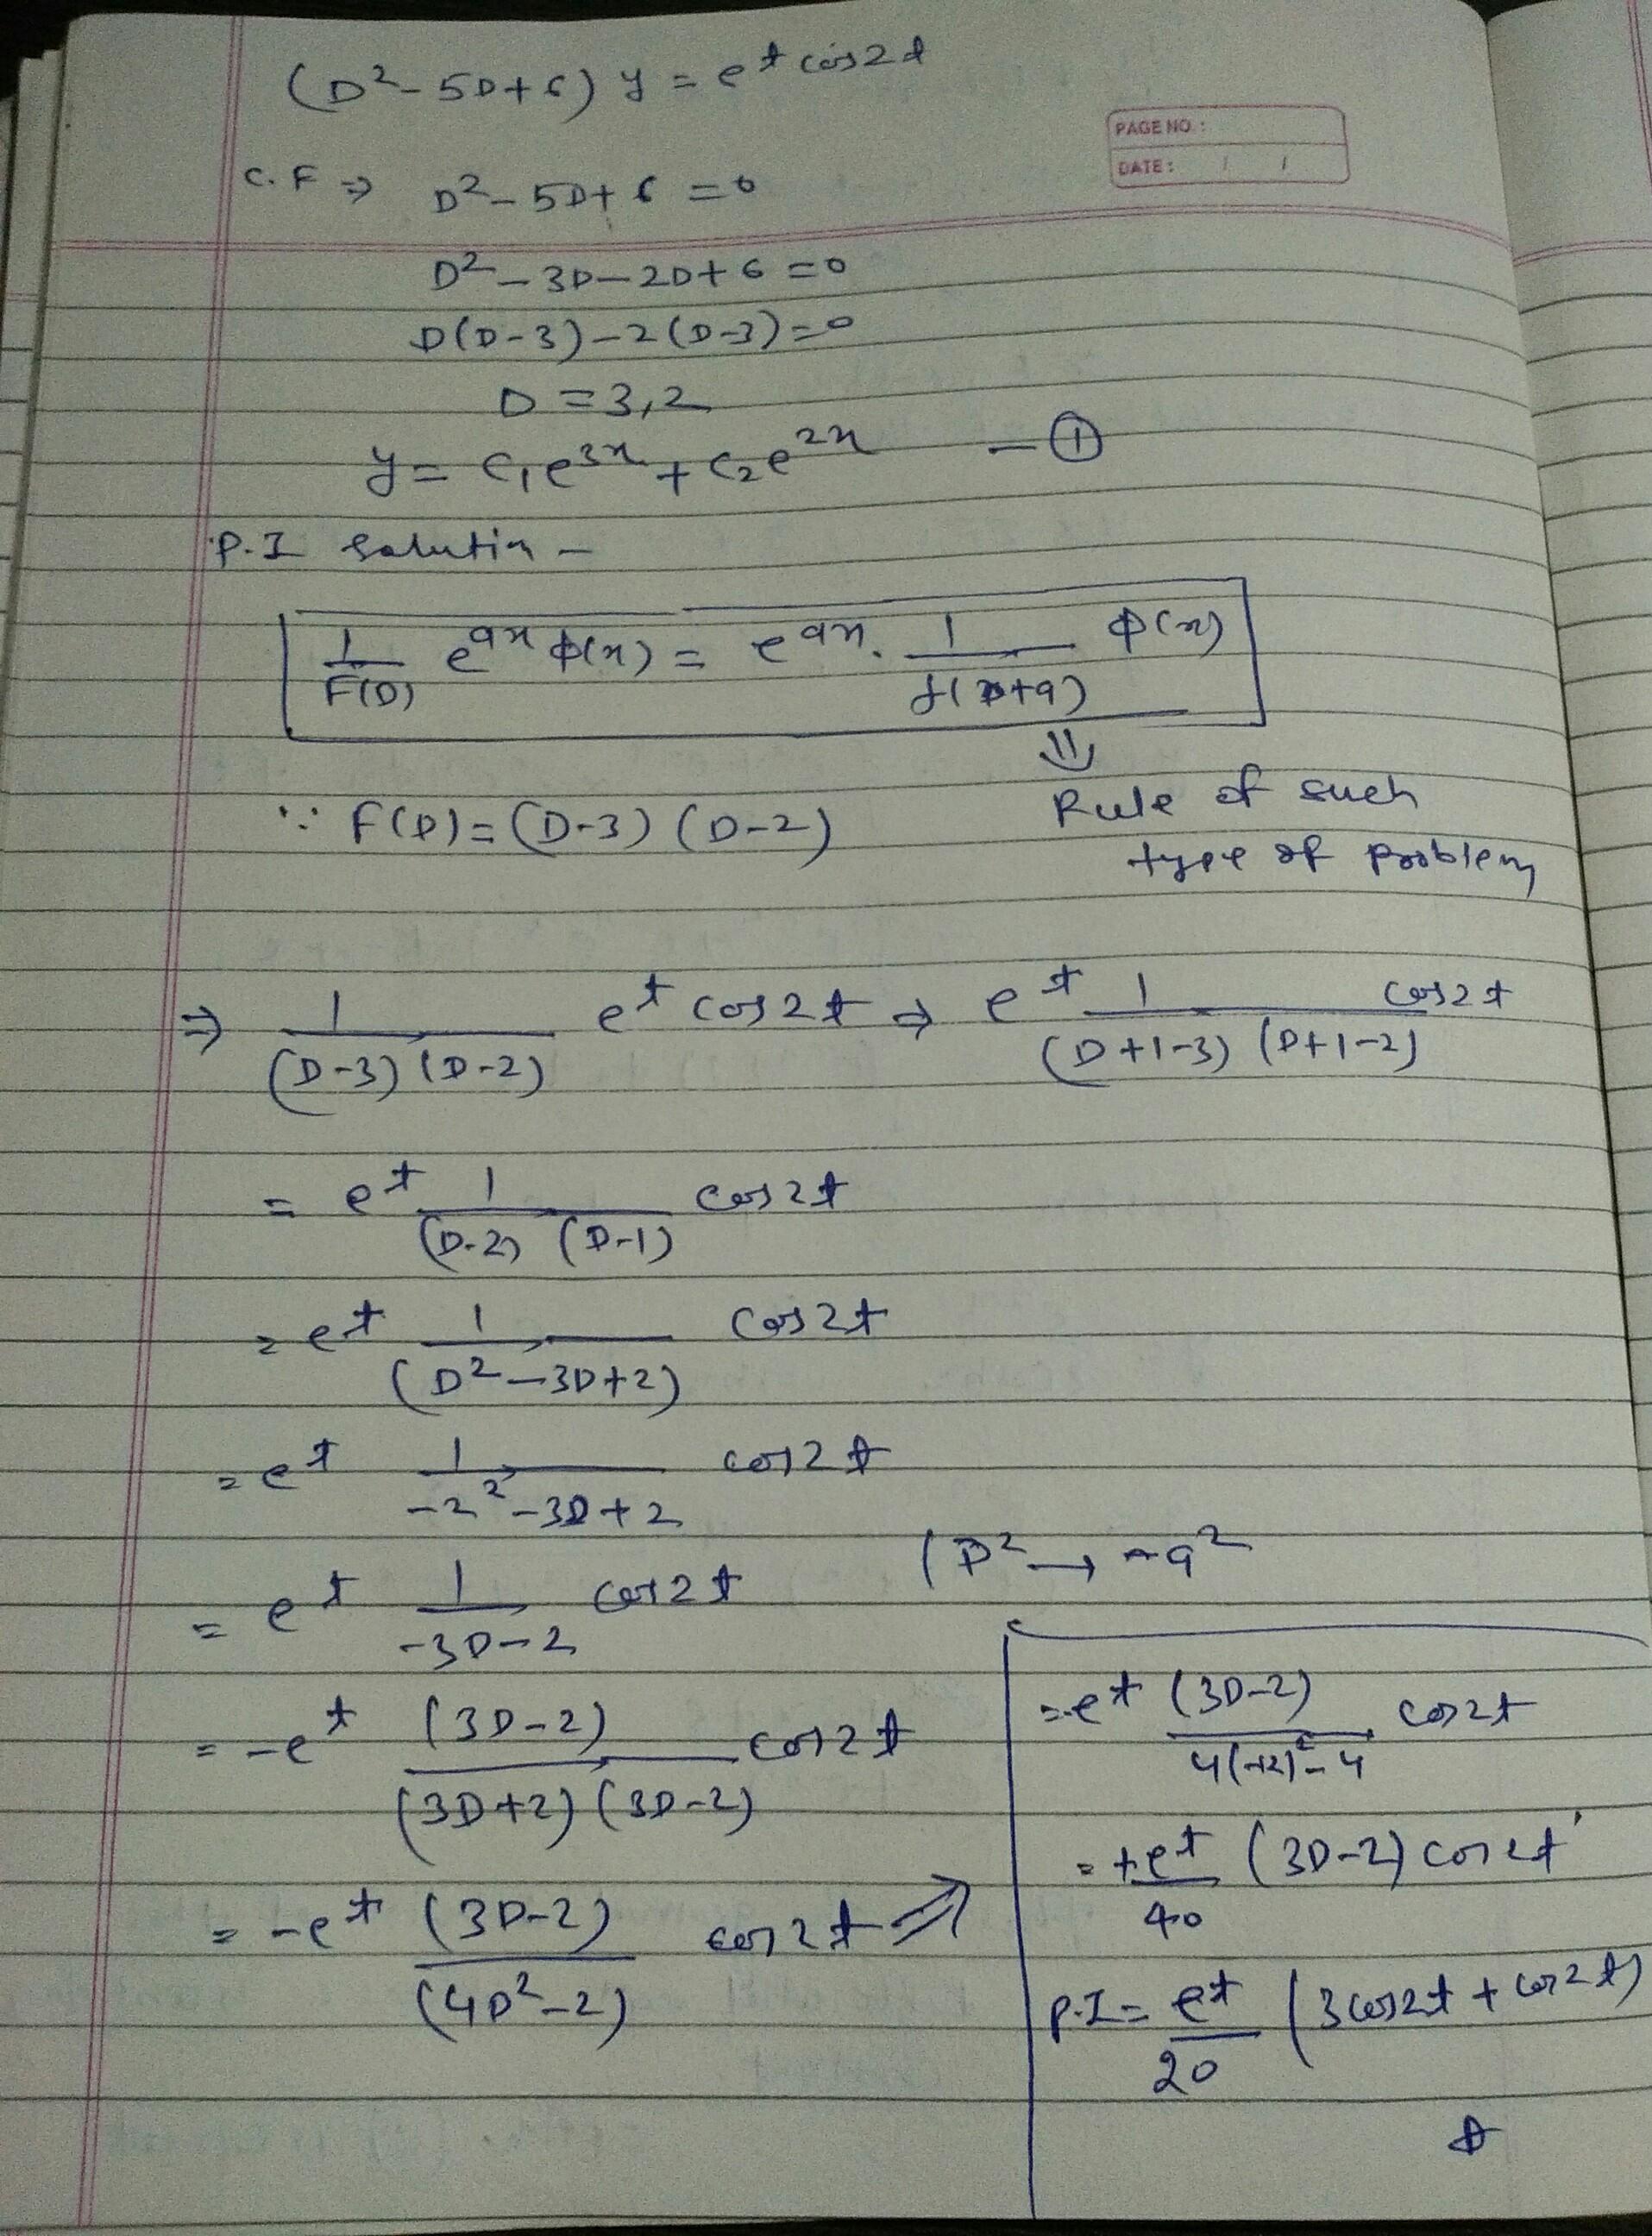 (D² - 5D + 6) y = e^t cos2t
PAGE NO.:
DATE: / /
C.F ⇒ D² - 5D + 6 = 0
D² - 3D - 2D + 6 = 0
D(D-3) - 2(D-3) = 0
D = 3,2
y = c₁e^3x + c₂e^2x — ①
P.I solutin -
1/F(D) e^ax ϕ(x) = e^ax. 1/f(D+a) ϕ(x)
⇓
Rule of such
type of problem
∵ F(D) = (D-3) (D-2)
⇒ 1/((D-3) (D-2)) e^t cos2t ⇒ e^t 1/((D+1-3) (D+1-2)) cos2t
= e^t 1/((D-2) (D-1)) cos2t
= e^t 1/(D² - 3D + 2) cos2t
= e^t 1/(-2² - 3D + 2) cos2t
(D² → -a²
= e^t 1/(-3D - 2) cos2t
= -e^t (3D-2)/((3D+2) (3D-2)) cos2t
= -e^t (3D-2)/(4D² - 2) cos2t ⇒
= -e^t (3D-2)/(4(-2)² - 4) cos2t
= +e^t/40 (3D-2) cos2t
P.I = e^t/20 (3cos2t + cos2t)